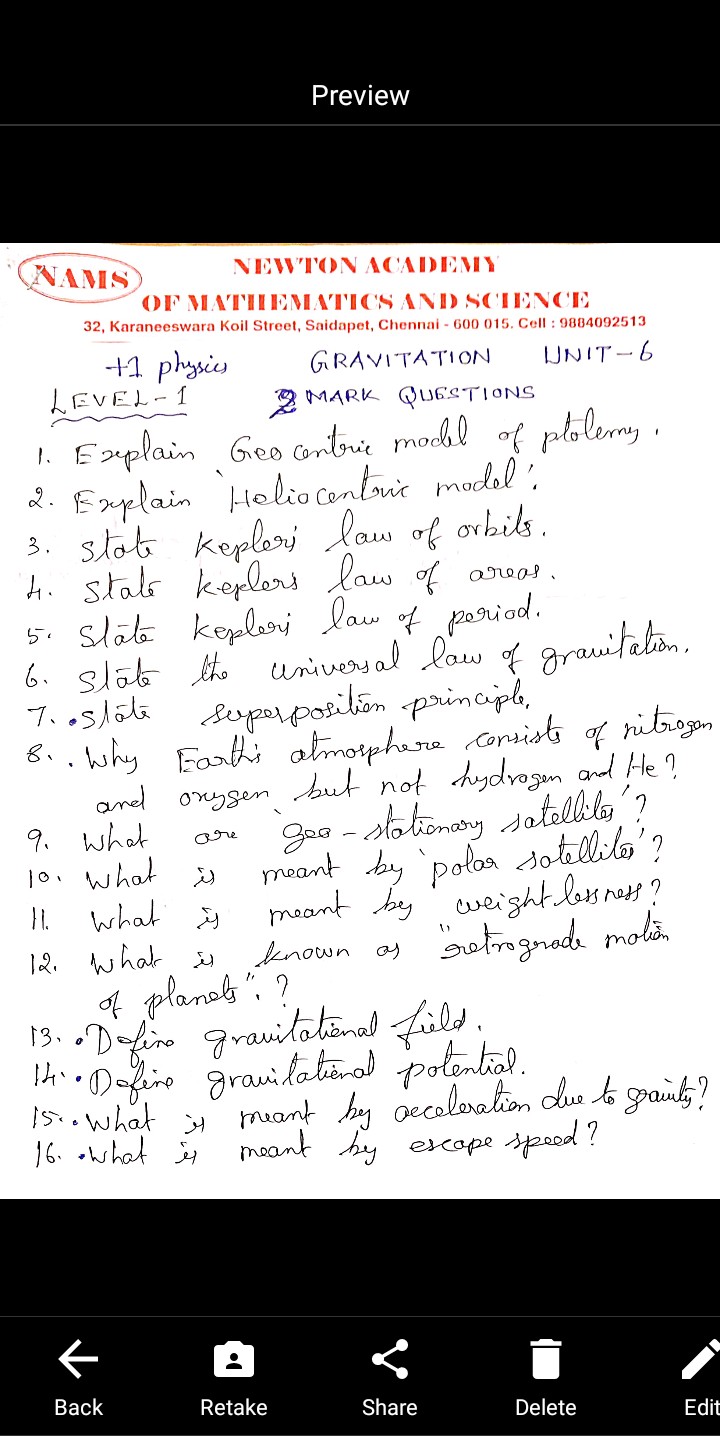 Preview
NAMS
NEWTON ACADEMY
OF MATHEMATICS AND SCIENCE
32, Karaneeswara Koil Street, Saidapet, Chennai - 600 015. Cell : 9884092513
+1 physics GRAVITATION UNIT-6
LEVEL-1 2 MARK QUESTIONS
1. Explain Geo centric model of ptolemy.
2. Explain 'Heliocentric model'.
3. State Keplers law of orbits.
4. State keplers law of areas.
5. State keplers law of period.
6. State the universal law of gravitation.
7. State superposition principle.
8. Why Earth's atmosphere consists of nitrogen
and oxygen but not hydrogen and He?
9. What are 'geo-stationary satellites'?
10. What is meant by 'polar satellites'?
11. What is meant by weightlessness?
12. What is known as "retrograde motion
of planets".?
13. Define gravitational field.
14. Define gravitational potential.
15. What is meant by acceleration due to gravity?
16. What is meant by escape speed?
Back Retake Share Delete Edit